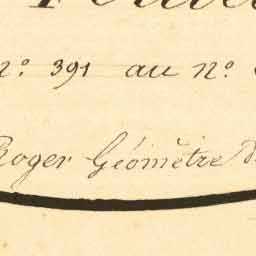 n.º 391 au n.º
Roger Géomètre